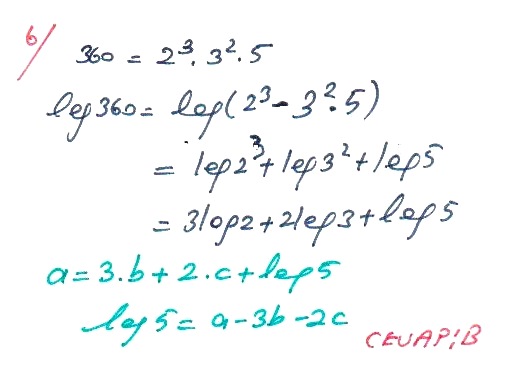 6/
360 = 2³. 3². 5
log 360 = log(2³ - 3². 5)
= log2³ + log3² + log5
= 3log2 + 2log3 + log5
a = 3.b + 2.c + log5
log 5 = a - 3b - 2c
CEVAP: B